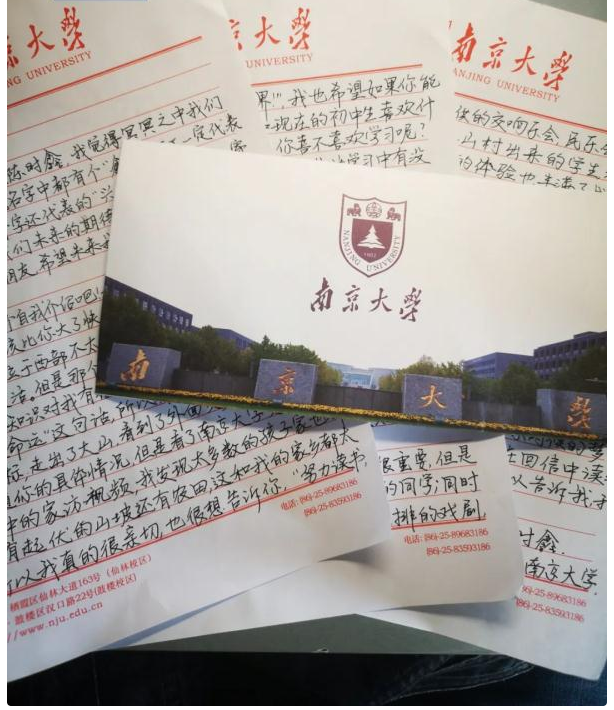 京大學
NG UNIVERSITY
陈时鑫,我觉得冥冥之中我们
名字中都有个"鑫
一定代表
字还代表的"兴
们未来的期待
朋友,希望未来
自我介绍吧!
比你大了快
于西部不大
活。但是那个
知识对我有
命运"这句话,所以
征,走出了大山,看到了外面
但你的具体情况,但是看了南京大学
中的家访视频,我发现大多数的孩子家也
有起伏的山坡还有农田,这和我的家乡都太
以我真的很亲切,也很想告诉你,"努力读书,
电话:(86)-25-89683186
(86)-25-83593186
栖霞区仙林大道163号(仙林校区)
鼓楼区汉口路22号(鼓楼校区)
//www.nju.edu.cn
京大學
UNIVERSITY
界!"。我也希望如果你能
现在的初中生喜欢什
你喜不喜欢学习呢?
学习中有没
很重要,但是
的同学;同时
排的戏剧,
电话:(86)-25-89683186
(86)-25-83593186
南京大學
ANJING UNIVERSITY
的交响乐会、民乐会
山村出来的学生
的体验也
在回信中读
以告诉我,我
时鑫。
南京大学.
86)-25-89683186
86)-25-83593186
NANJING UNIVERSITY
1902
南京大學
南京大學